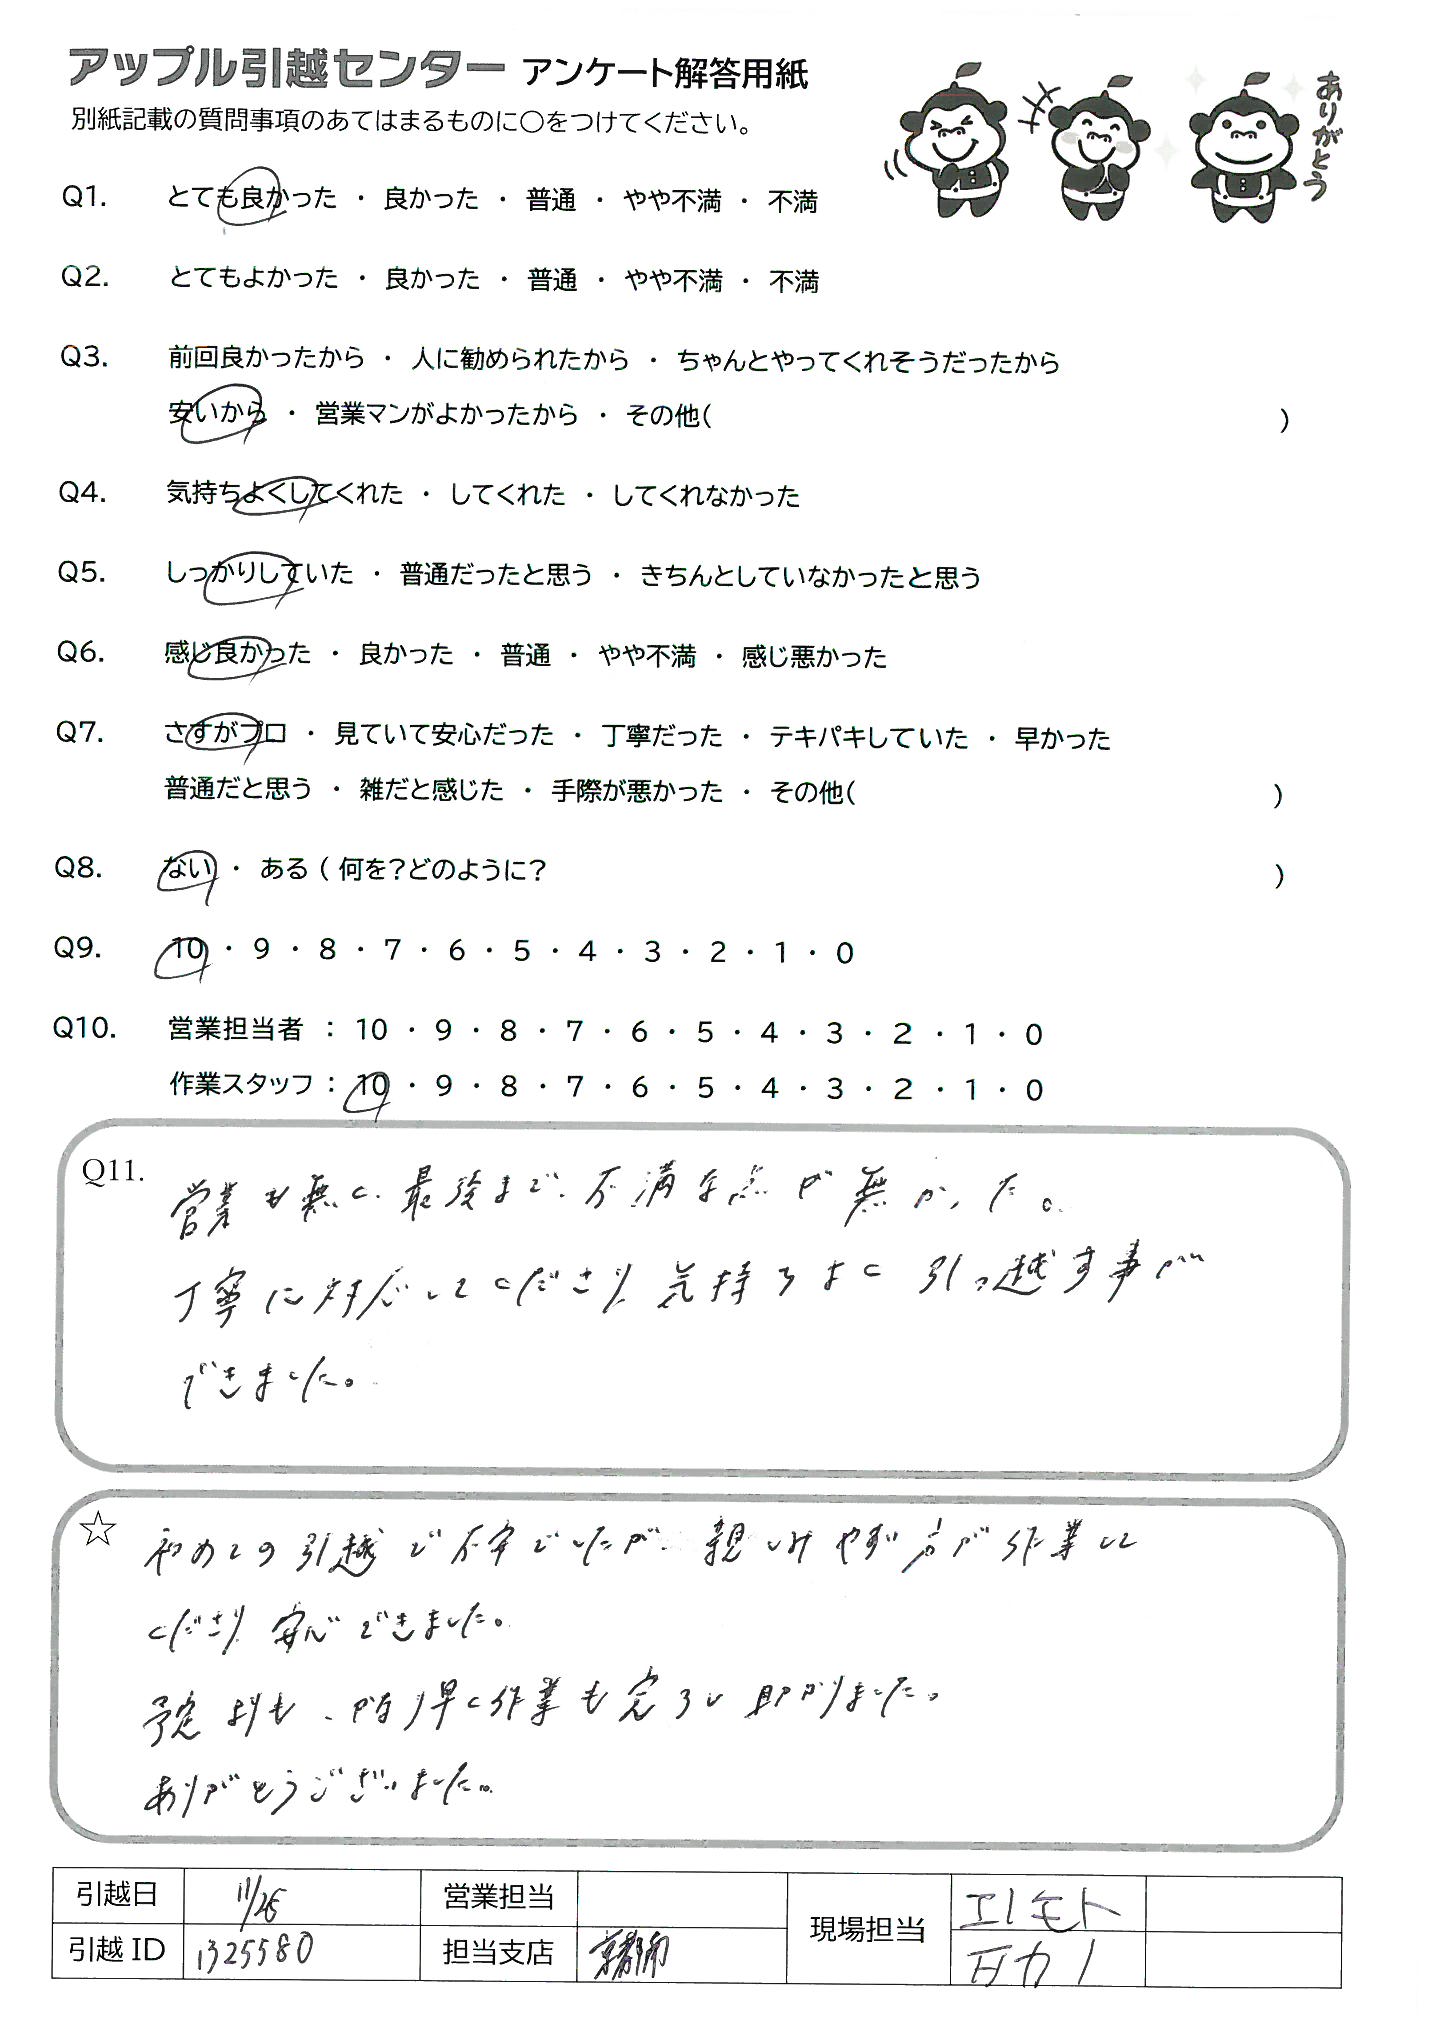 アップル引越センター アンケート解答用紙
別紙記載の質問事項のあてはまるものに○をつけてください。
ありがとう
Q1. とても良かった ・ 良かった ・ 普通 ・ やや不満 ・ 不満
Q2. とてもよかった ・ 良かった ・ 普通 ・ やや不満 ・ 不満
Q3. 前回良かったから ・ 人に勧められたから ・ ちゃんとやってくれそうだったから
安いから ・ 営業マンがよかったから ・ その他( )
Q4. 気持ちよくしてくれた ・ してくれた ・ してくれなかった
Q5. しっかりしていた ・ 普通だったと思う ・ きちんとしていなかったと思う
Q6. 感じ良かった ・ 良かった ・ 普通 ・ やや不満 ・ 感じ悪かった
Q7. さすがプロ ・ 見ていて安心だった ・ 丁寧だった ・ テキパキしていた ・ 早かった
普通だと思う ・ 雑だと感じた ・ 手際が悪かった ・ その他( )
Q8. ない ・ ある ( 何を?どのように? )
Q9. 10 ・ 9 ・ 8 ・ 7 ・ 6 ・ 5 ・ 4 ・ 3 ・ 2 ・ 1 ・ 0
Q10. 営業担当者 : 10 ・ 9 ・ 8 ・ 7 ・ 6 ・ 5 ・ 4 ・ 3 ・ 2 ・ 1 ・ 0
作業スタッフ : 10 ・ 9 ・ 8 ・ 7 ・ 6 ・ 5 ・ 4 ・ 3 ・ 2 ・ 1 ・ 0
Q11. 営業も無く、最後まで、不満な点が無かった。
丁寧に対応してくださり、気持ちよく引っ越す事が
できました。
☆ 初めての引越で不安でしたが、親しみやすい方が作業して
くださり、安心できました。
予定よりも、かなり早く作業も完了し助かりました。
ありがとうございました。
引越日 11/25 営業担当 現場担当 エノモト
引越ID 1325580 担当支店 京都南